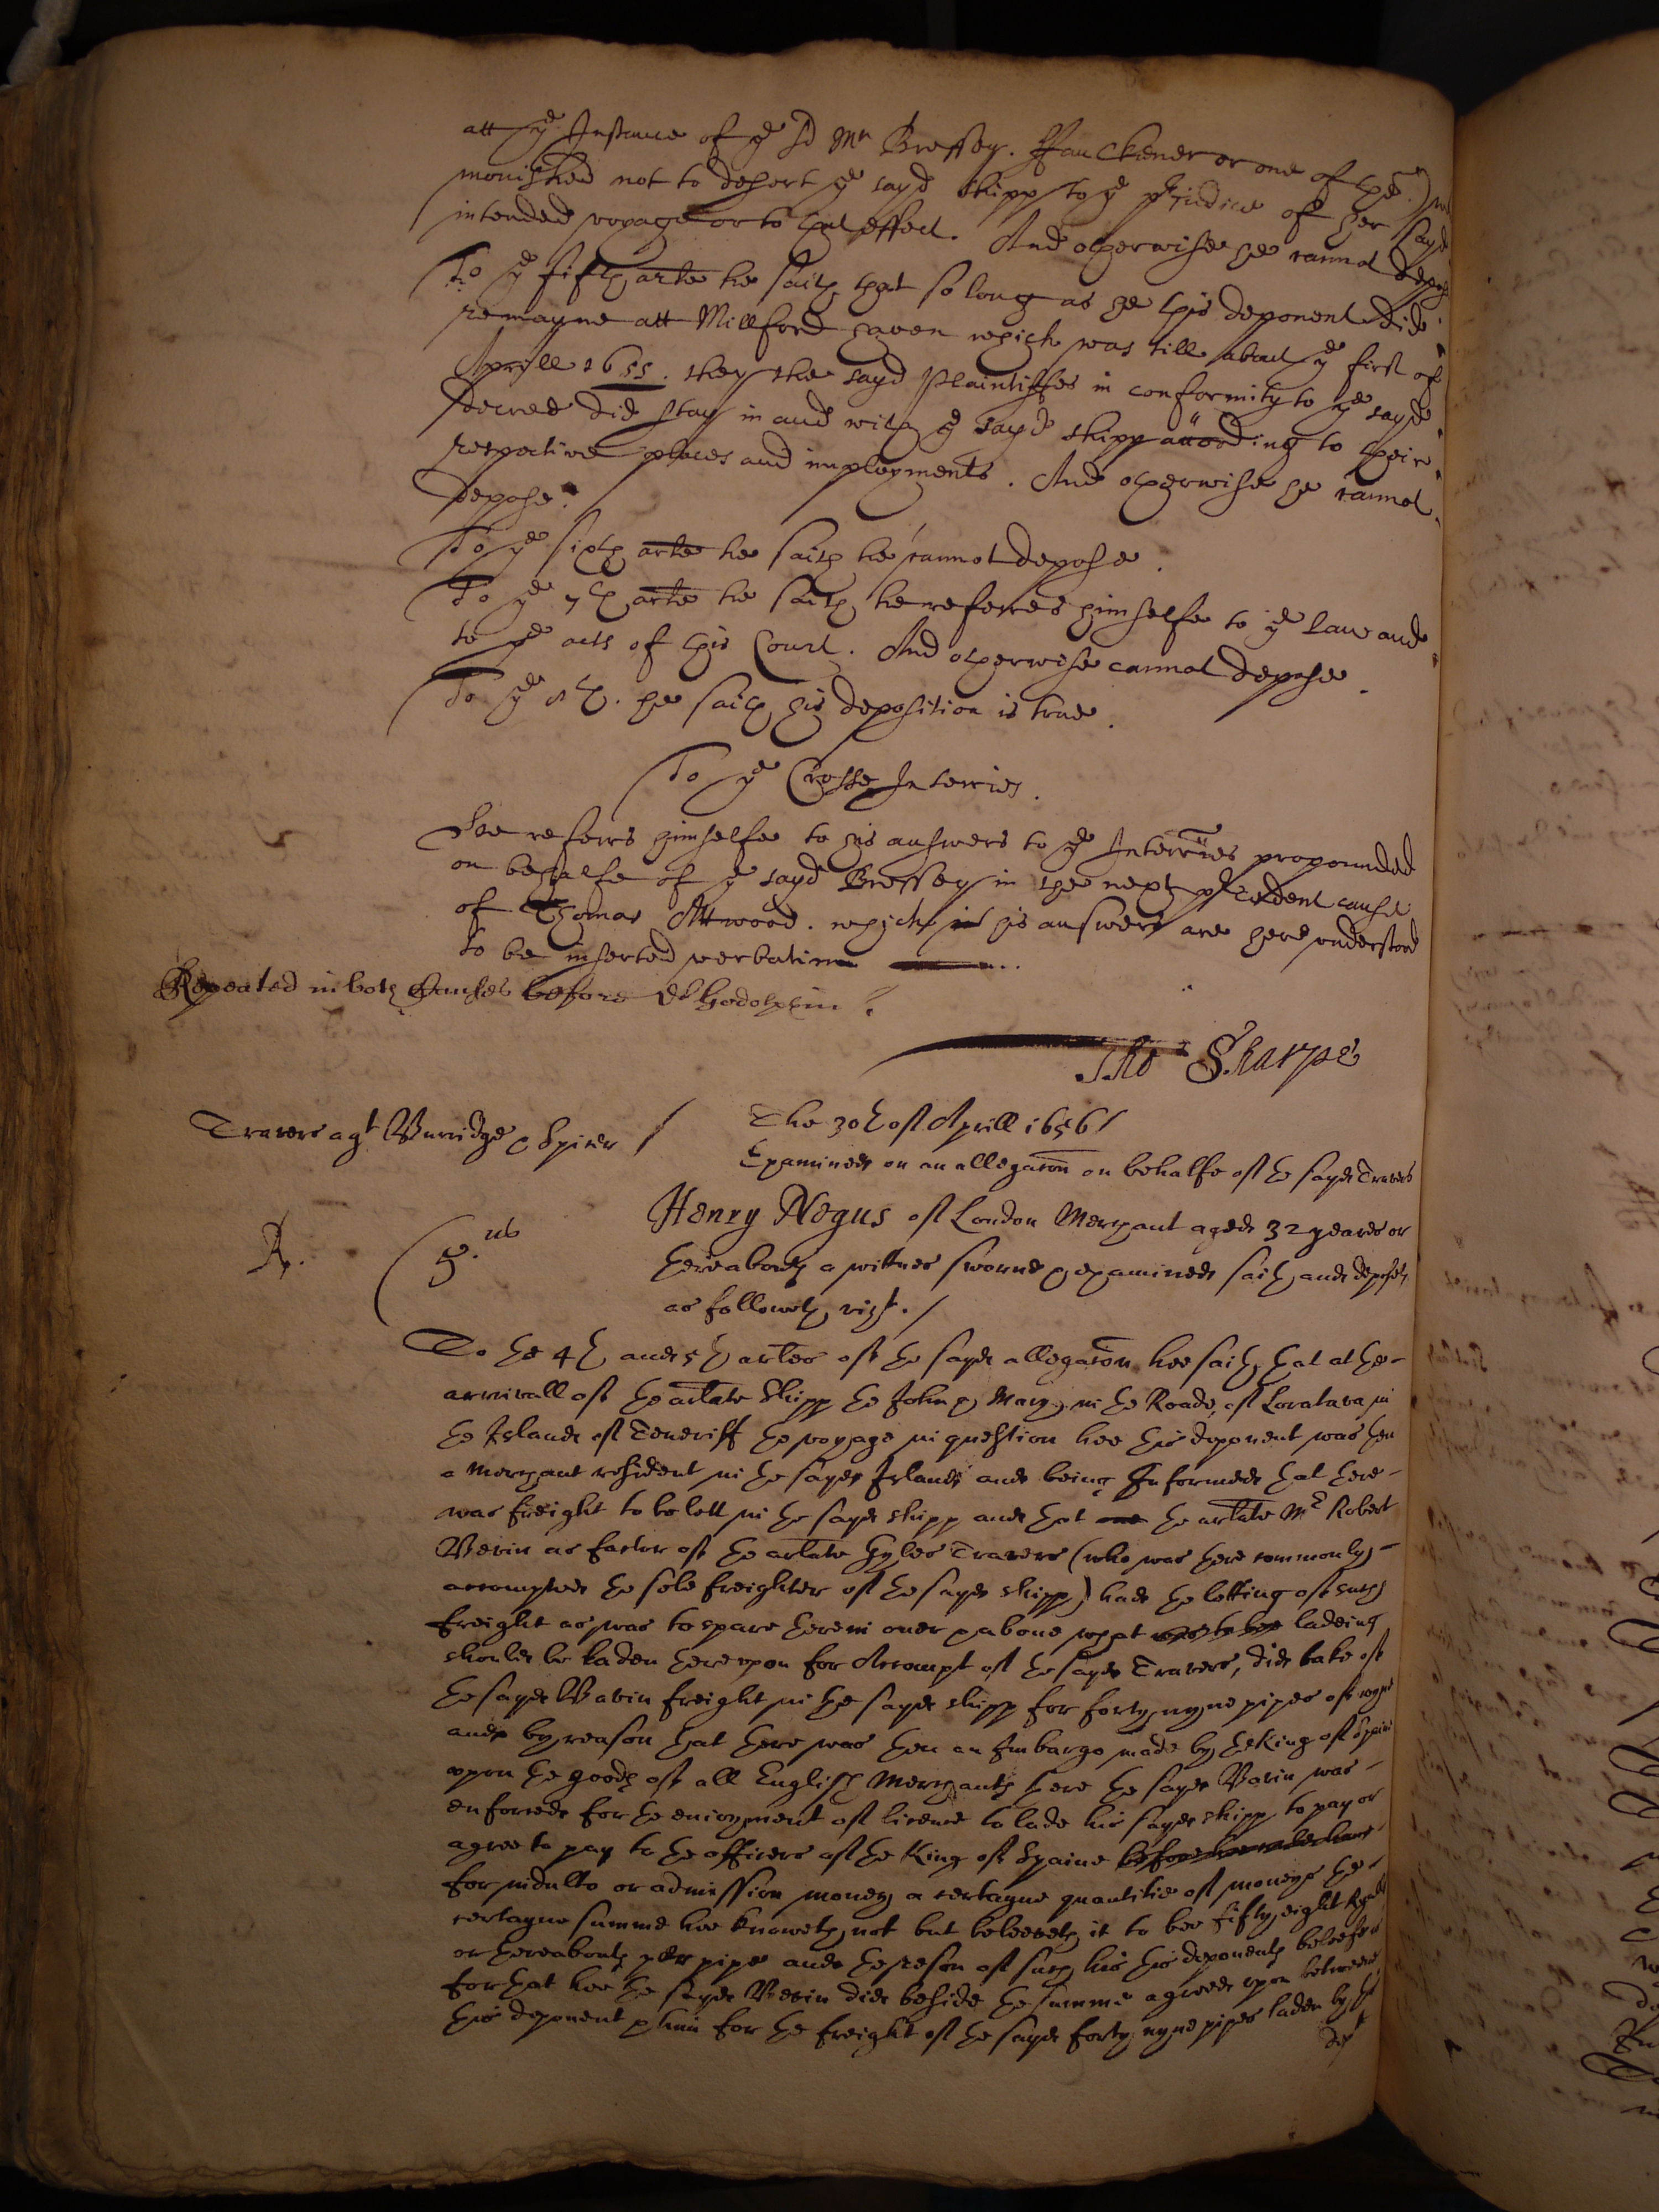 att ye Instance of ye sd Mr Bressey. Fauckener or one of them)
monished not to desert ye sayd shipp to ye prjudice of her sayd
intended voyage or to that effect. And otherwise he cannot depose
To ye fifth arte he saith that so long as he this deponent did
remayne att Millford haven which was till about ye first of
Aprill 1655. they the sayd Plaintiffes in conformity to ye sayd
decree did stay in and with ye sayd shipp according to their
respective places and imployments. And otherwise he cannot
depose.
To ye sixth arte he saith he cannot depose.
To ye 7th arte he saith he referres himselfe to ye Law and
to ye acts of this Court. And otherwise cannot depose.
To ye 8th. he saith his deposition is true.
To ye Crosse Interries.
Hee referrs himselfe to his answers to ye Interries propounded
on behalfe of ye sayd Bressey in the next precedent cause
of Thomas Attwood. which his answers are here understood
to be inserted verbatim
Repeated in both Causes before Dr Godolphin.
Tho Sharpe
Travers agt Burridge & Spicer /
The 30th of Aprill 1656 /
Examined on an allegacon on behalfe of the sayd Travers
R. 5.us
Henry Negus of London Merchant aged 32 yeares or
thereabouts a wittnes sworne & examined saith and deposeth
as followeth vizt. /
To the 4th and 5th artles of the sayd allegacon hee saith that at the
arrivall of the arlate shipp the John & Mary in the Roade of Loratava in
the Island of Teneriff the voyage in question hee this deponent was then
a Merchant resident in the sayd Island and being Informed that there
was freight to be lett in the sayd shipp and that the arlate Mr Robert
Bevin as factor of the arlate Gyles Travers (who was there commonly
accompted the sole freighter of the sayd shipp) had the letting of such
freight as was to spare therein over & above what was to bee ladeing
should be laden thereupon for Accompt of the sayd Travers, did take of
the sayd Bevin freight in the sayd shipp for forty nyne pipes of wyne
and by reason that there was then an Imbargo made by the King of Spaine
upon the goods of all English Merchants there the sayd Bevin was
enforced for the enioyment of licence to lade his sayd shipp to pay or
agree to pay to the officers of the King of Spaine before
for indulto or admission money a certayne quantitie of moneys the
certayne summe hee knoweth not but beleeveth it to bee fifty eight Ryalls
or thereabouts per pipe and the reason of such his this deponents beleefe is
for that hee the sayd Bevin did beside the summe agreed upon betweene
this deponent & him for the freight of the sayd forty nyne pipes laden by the